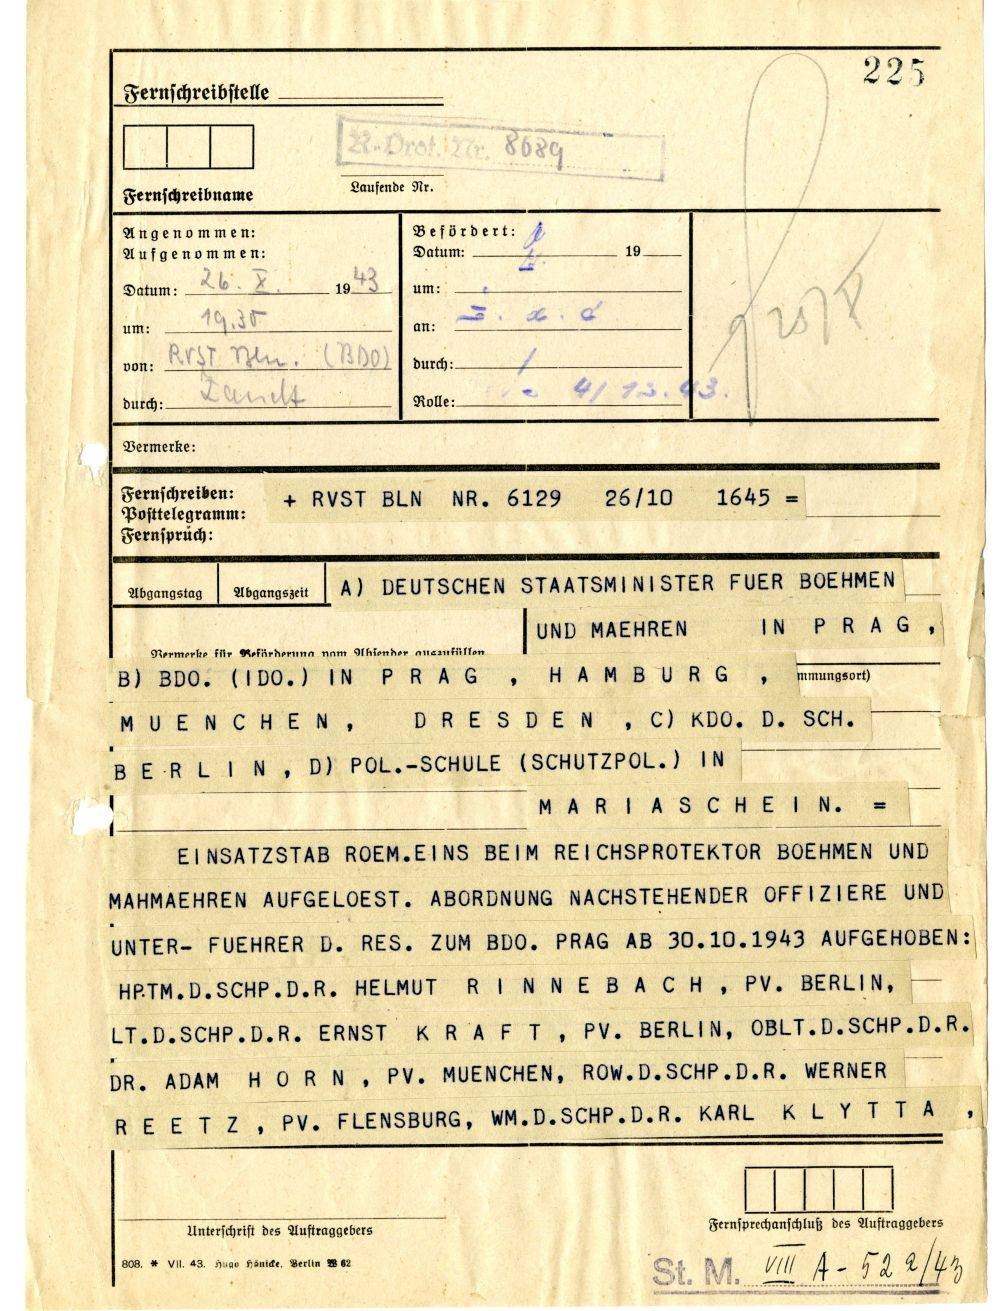 225
Fernschreibstelle
R-Prot. Nr. 8689
Laufende Nr.
Fernschreibname
Angenommen:
Aufgenommen:
Datum: 26. X. 1943
um: 19.35
von: RVST Bln. (BDO)
durch:
Befördert:
Datum: 19
um:
an:
durch:
Rolle: 4/ 13. 43.
Vermerke:
Fernschreiben:
Posttelegramm:
Fernspruch:
+ RVST BLN NR. 6129 26/10 1645 =
Abgangstag
Abgangszeit
A) DEUTSCHEN STAATSMINISTER FUER BOEHMEN
UND MAEHREN IN P R A G ,
Vermerke für Beförderung vom Absender auszufüllen
B) BDO. (IDO.) IN P R A G , H A M B U R G ,
mmungsort)
M U E N C H E N , D R E S D E N , C) KDO. D. SCH.
B E R L I N , D) POL.-SCHULE (SCHUTZPOL.) IN
M A R I A S C H E I N. =
EINSATZSTAB ROEM.EINS BEIM REICHSPROTEKTOR BOEHMEN UND
MAHMAEHREN AUFGELOEST. ABORDNUNG NACHSTEHENDER OFFIZIERE UND
UNTER- FUEHRER D. RES. ZUM BDO. PRAG AB 30.10.1943 AUFGEHOBEN:
HP.TM.D.SCHP.D.R. HELMUT R I N N E B A C H , PV. BERLIN,
LT.D.SCHP.D.R. ERNST K R A F T , PV. BERLIN, OBLT.D.SCHP.D.R.
DR. ADAM H O R N , PV. MUENCHEN, ROW.D.SCHP.D.R. WERNER
R E E T Z , PV. FLENSBURG, WM.D.SCHP.D.R. KARL K L Y T T A ,
Unterschrift des Auftraggebers
Fernsprechanschluß des Auftraggebers
808. * VII. 43. Hugo Hönicke, Berlin W 62
St. M. VIII A - 522/43